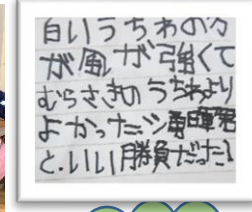 白いうちわの方
が風が強くて
むらさきのうちわより
よかった
と.いい勝負だった